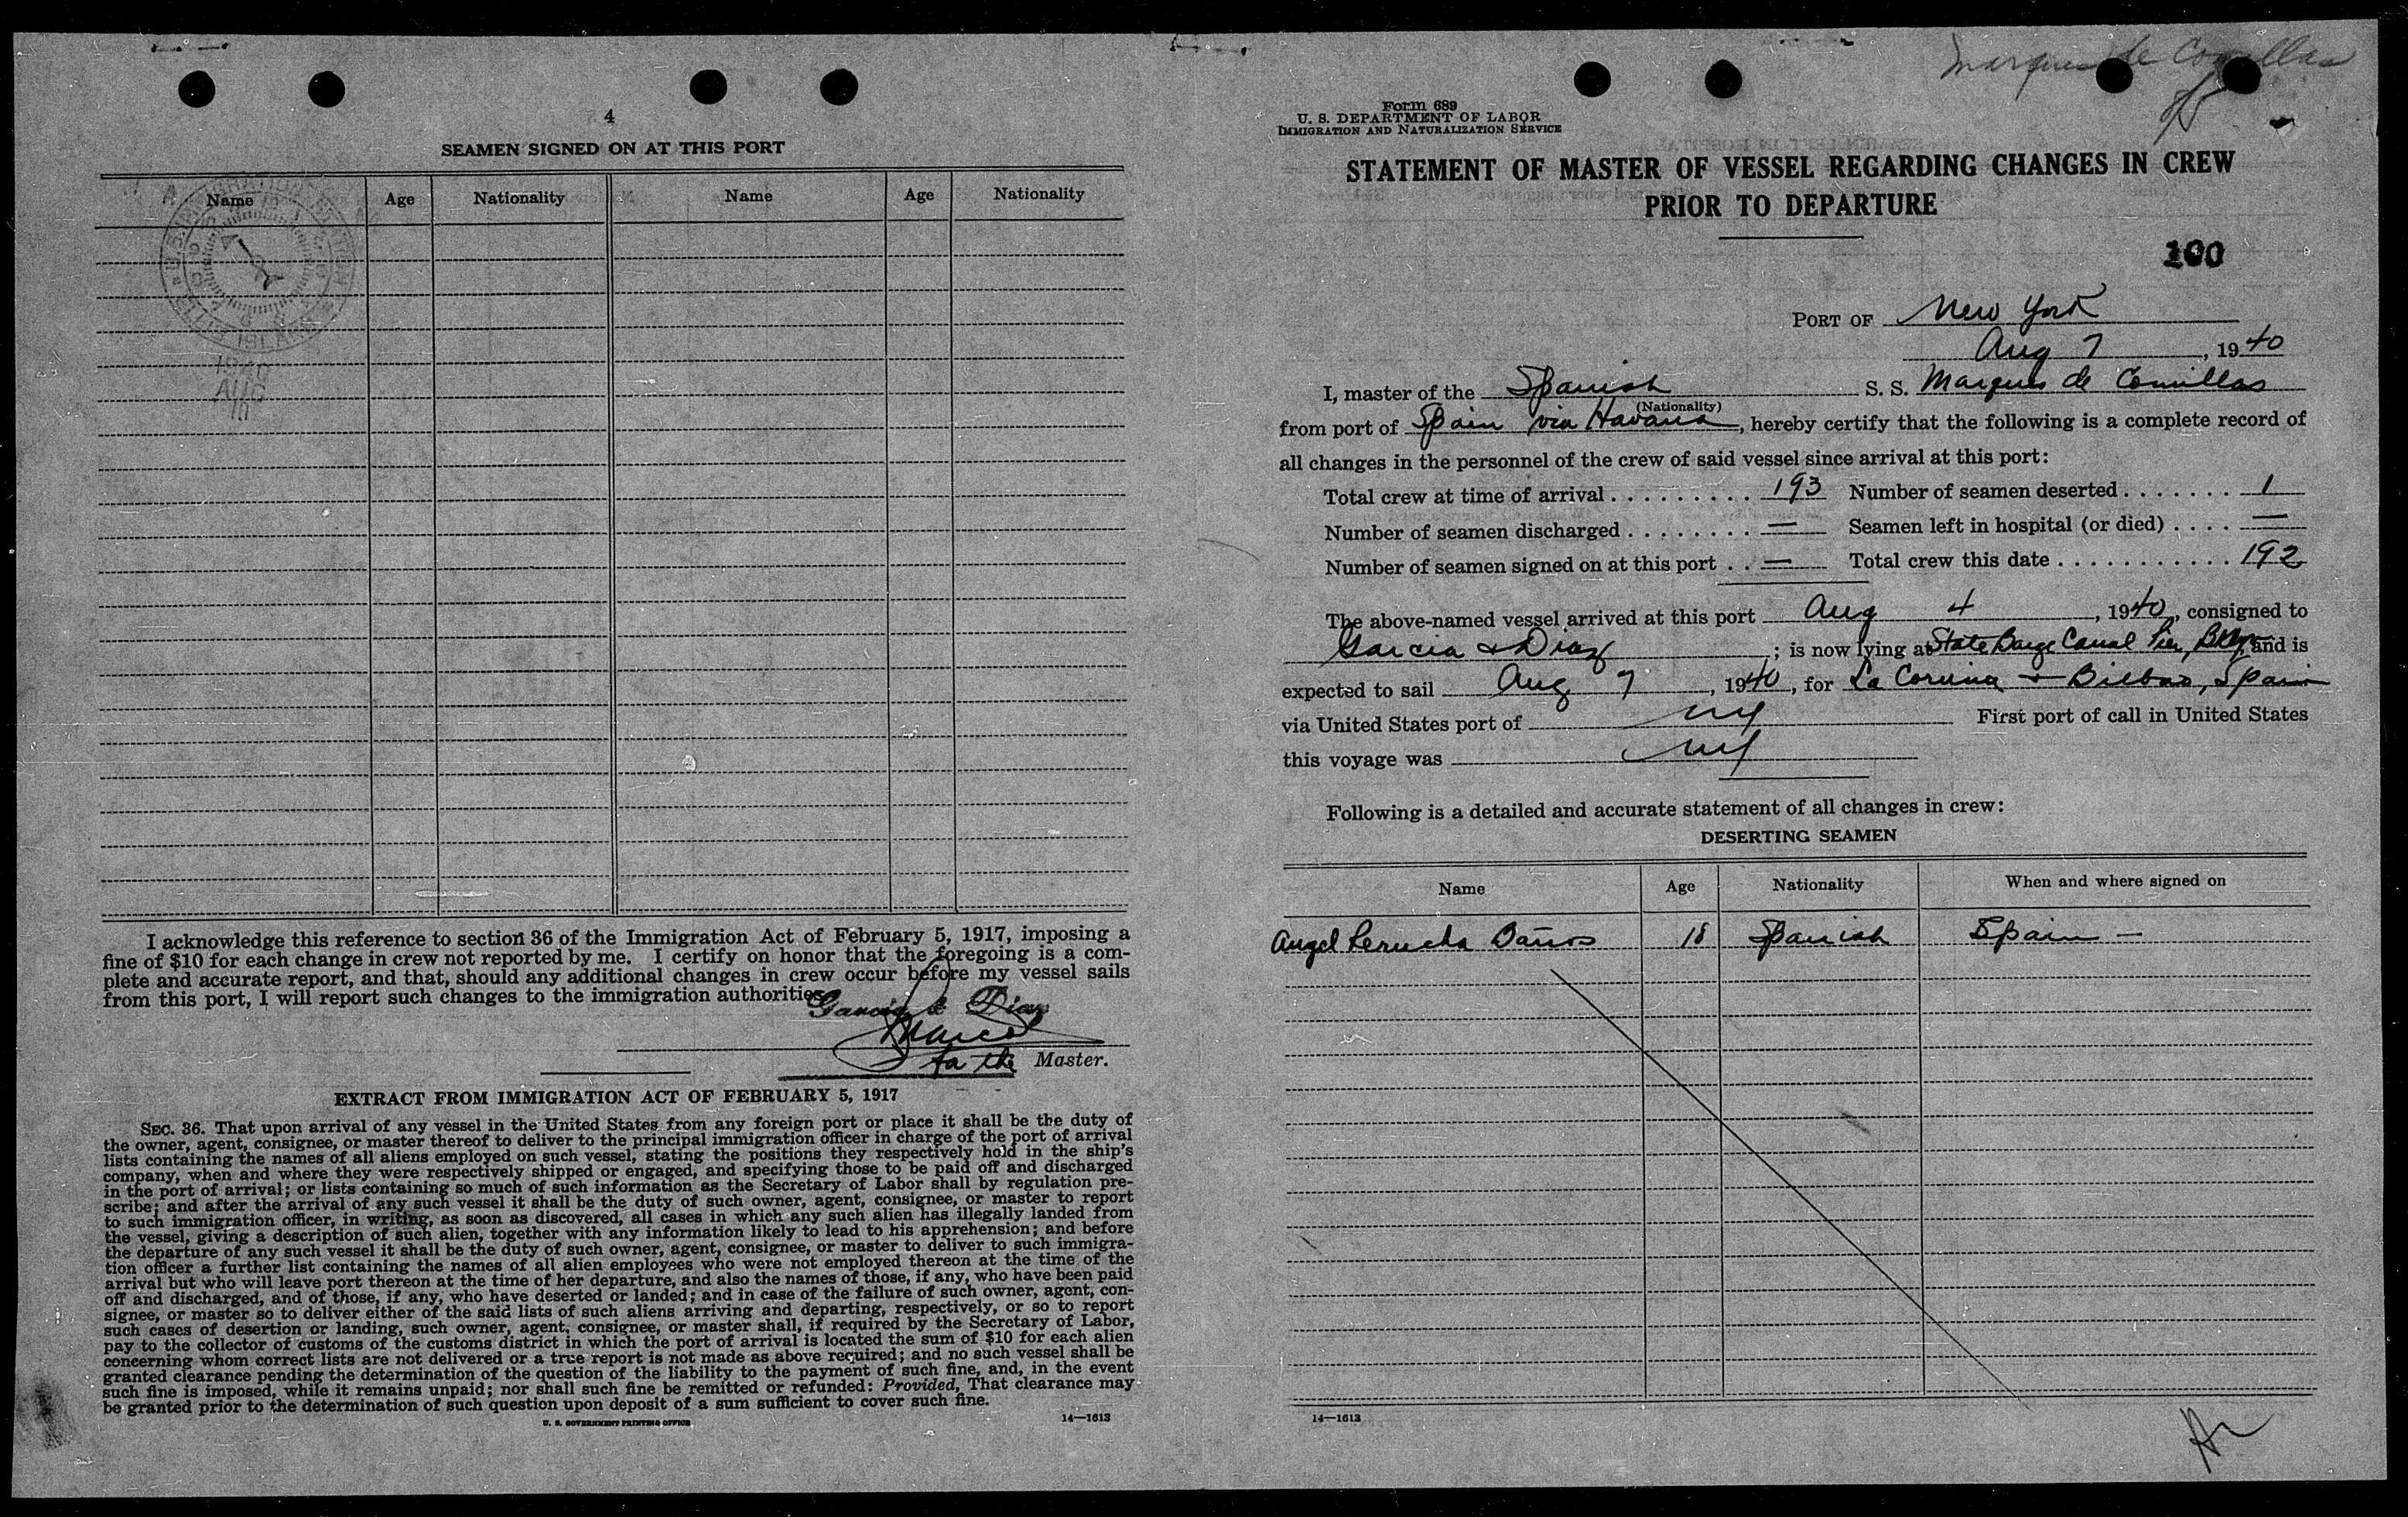 4
SEAMEN SIGNED ON AT THIS PORT
Name Age Nationality Name Age Nationality
ELLIS ISLAND
1940
AUG
10
I acknowledge this reference to section 36 of the Immigration Act of February 5, 1917, imposing a
fine of $10 for each change in crew not reported by me. I certify on honor that the foregoing is a com-
plete and accurate report, and that, should any additional changes in crew occur before my vessel sails
from this port, I will report such changes to the immigration authorities.
Garcia & Diaz
Master.
EXTRACT FROM IMMIGRATION ACT OF FEBRUARY 5, 1917
SEC. 36. That upon arrival of any vessel in the United States from any foreign port or place it shall be the duty of
the owner, agent, consignee, or master thereof to deliver to the principal immigration officer in charge of the port of arrival
lists containing the names of all aliens employed on such vessel, stating the positions they respectively hold in the ship's
company, when and where they were respectively shipped or engaged, and specifying those to be paid off and discharged
in the port of arrival; or lists containing so much of such information as the Secretary of Labor shall by regulation pre-
scribe; and after the arrival of any such vessel it shall be the duty of such owner, agent, consignee, or master to report
to such immigration officer, in writing, as soon as discovered, all cases in which any such alien has illegally landed from
the vessel, giving a description of such alien, together with any information likely to lead to his apprehension; and before
the departure of any such vessel it shall be the duty of such owner, agent, consignee, or master to deliver to such immigra-
tion officer a further list containing the names of all alien employees who were not employed thereon at the time of the
arrival but who will leave port thereon at the time of her departure, and also the names of those, if any, who have been paid
off and discharged, and of those, if any, who have deserted or landed; and in case of the failure of such owner, agent, con-
signee, or master so to deliver either of the said lists of such aliens arriving and departing, respectively, or so to report
such cases of desertion or landing, such owner, agent, consignee, or master shall, if required by the Secretary of Labor,
pay to the collector of customs of the customs district in which the port of arrival is located the sum of $10 for each alien
concerning whom correct lists are not delivered or a true report is not made as above required; and no such vessel shall be
granted clearance pending the determination of the question of the liability to the payment of such fine, and, in the event
such fine is imposed, while it remains unpaid; nor shall such fine be remitted or refunded: Provided, That clearance may
be granted prior to the determination of such question upon deposit of a sum sufficient to cover such fine.
U. S. GOVERNMENT PRINTING OFFICE 14—1613
Marques de Comillas
Form 689
U. S. DEPARTMENT OF LABOR
IMMIGRATION AND NATURALIZATION SERVICE
STATEMENT OF MASTER OF VESSEL REGARDING CHANGES IN CREW
PRIOR TO DEPARTURE
100
PORT OF New York
Aug 7, 1940
I, master of the Spanish S. S. Marques de Comillas
(Nationality)
from port of Spain via Havana, hereby certify that the following is a complete record of
all changes in the personnel of the crew of said vessel since arrival at this port:
Total crew at time of arrival . . . . . . . . . 193 Number of seamen deserted . . . . . . . 1
Number of seamen discharged . . . . . . . . — Seamen left in hospital (or died) . . . . —
Number of seamen signed on at this port . . — Total crew this date . . . . . . . . . . . 192
The above-named vessel arrived at this port Aug 4, 1940, consigned to
Garcia & Diaz; is now lying at State Barge Canal Pier, Bklyn, and is
expected to sail Aug 7, 1940, for La Coruna & Bilbao, Spain
via United States port of NY First port of call in United States
this voyage was NY
Following is a detailed and accurate statement of all changes in crew:
DESERTING SEAMEN
Name Age Nationality When and where signed on
Angel Lerucha Daños 18 Spanish Spain —
14—1613